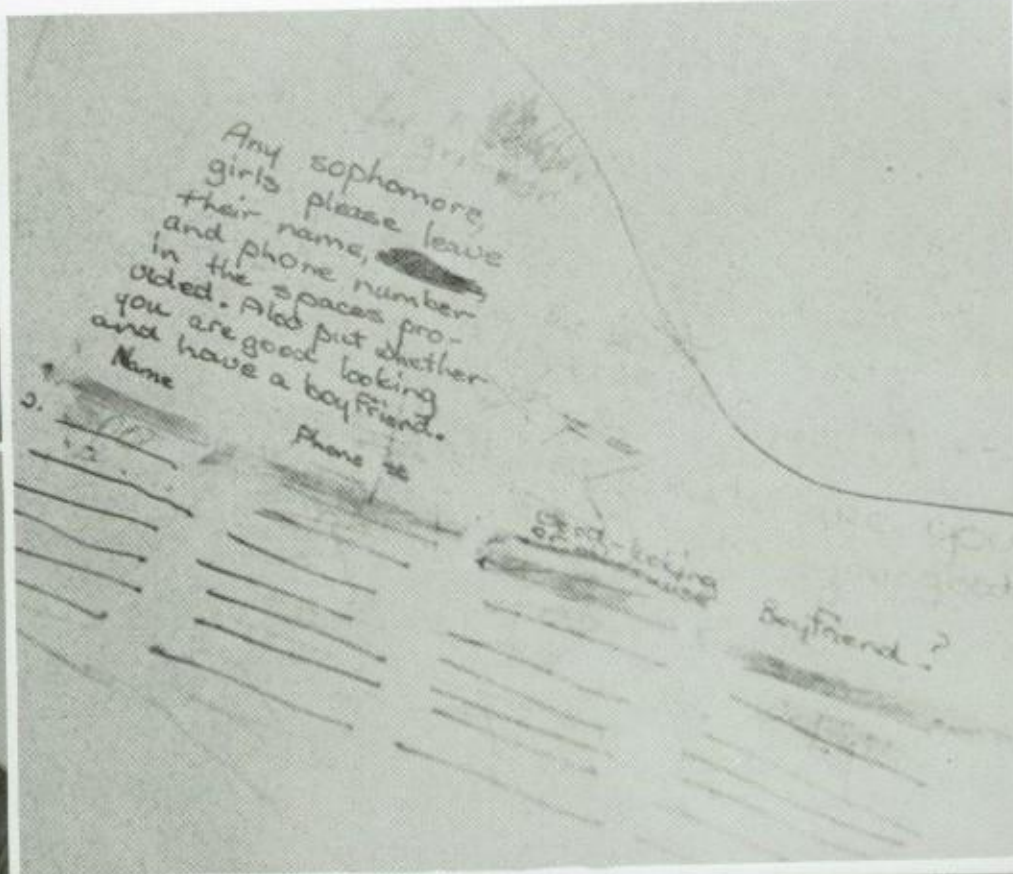 Any sophomore,
girls please leave
their name,
and phone number
in the spaces pro-
vided. Also put whether
you are good looking
and have a boyfriend.
Name
Phone #
Good looking
or otherwise
Boyfriend?
2.